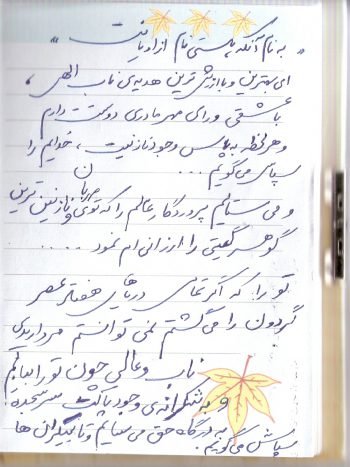 " به نام آنکه هستی نام از او یافت "
ای بهترین و با ارزش‌ترین هدیه‌ی ناب الهی ،
با عشقی ورای مهر مادری دوستت دارم
و هر لحظه به پاس وجود نازنینت ، خدایم را
سپاس می‌گویم ...
و می‌ستایم پروردگار عالم را که توی و نازنین ترین
گوهر گیتی را ارزانی ام نمود .....
تو را که اگر تمامی دریاهای هفتگانه
گردون را می‌گشتم نمی توانستم مرواریدی
ناب و عالی چون تو را بیابم
و به شکرانه‌ی وجود پاکت سر سجده
به درگاه حق می‌سایم و تا بیکران ها
سپاس می‌گویم.